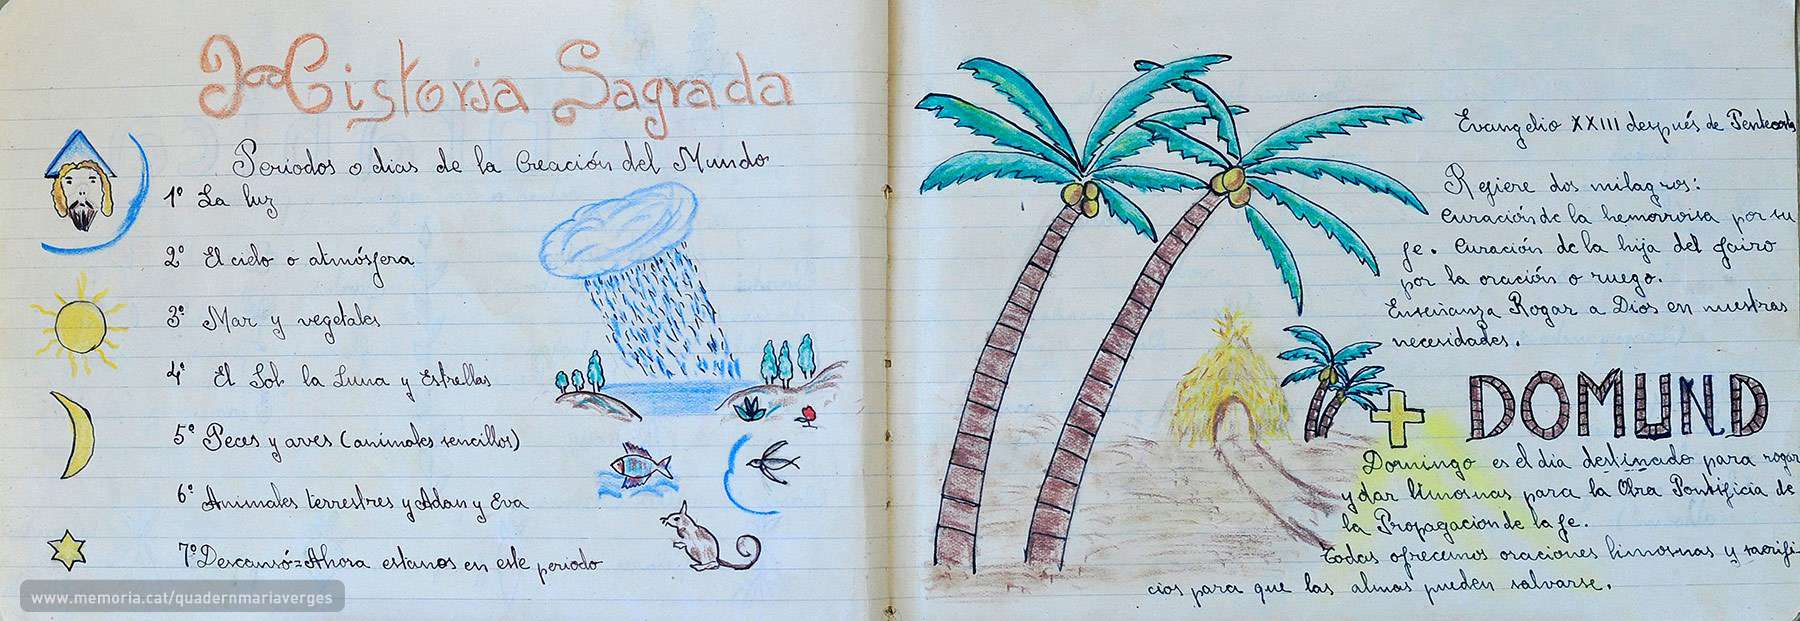 Historia Sagrada
Periodos o dias de la Creación del Mundo
1º La luz
2º El cielo o atmósfera
3º Mar y vegetales
4º El Sol la Luna y Estrellas
5º Peces y aves (animales sencillos)
6º Animales terrestres y Adan y Eva
7º Descansó=Ahora estamos en este periodo
www.memoria.cat/quadernmariaverges
Evangelio XXIII después de Pentecostés
Refiere dos milagros:
Curación de la hemorroisa por su
fe. Curación de la hija del Jairo
por la oración o ruego.
Enseñanza Rogar a Dios en nuestras
necesidades.
+ DOMUND
Domingo es el dia destinado para rogar
y dar limosnas para la Obra Pontificia de
la Propagacion de la fe.
Todas ofrecemos oraciones limosnas y sacrifi-
cios para que las almas pueden salvarse.